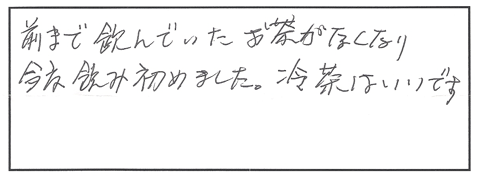 前まで飲んでいたお茶がなくなり
今度飲み初めました。冷茶はいいです